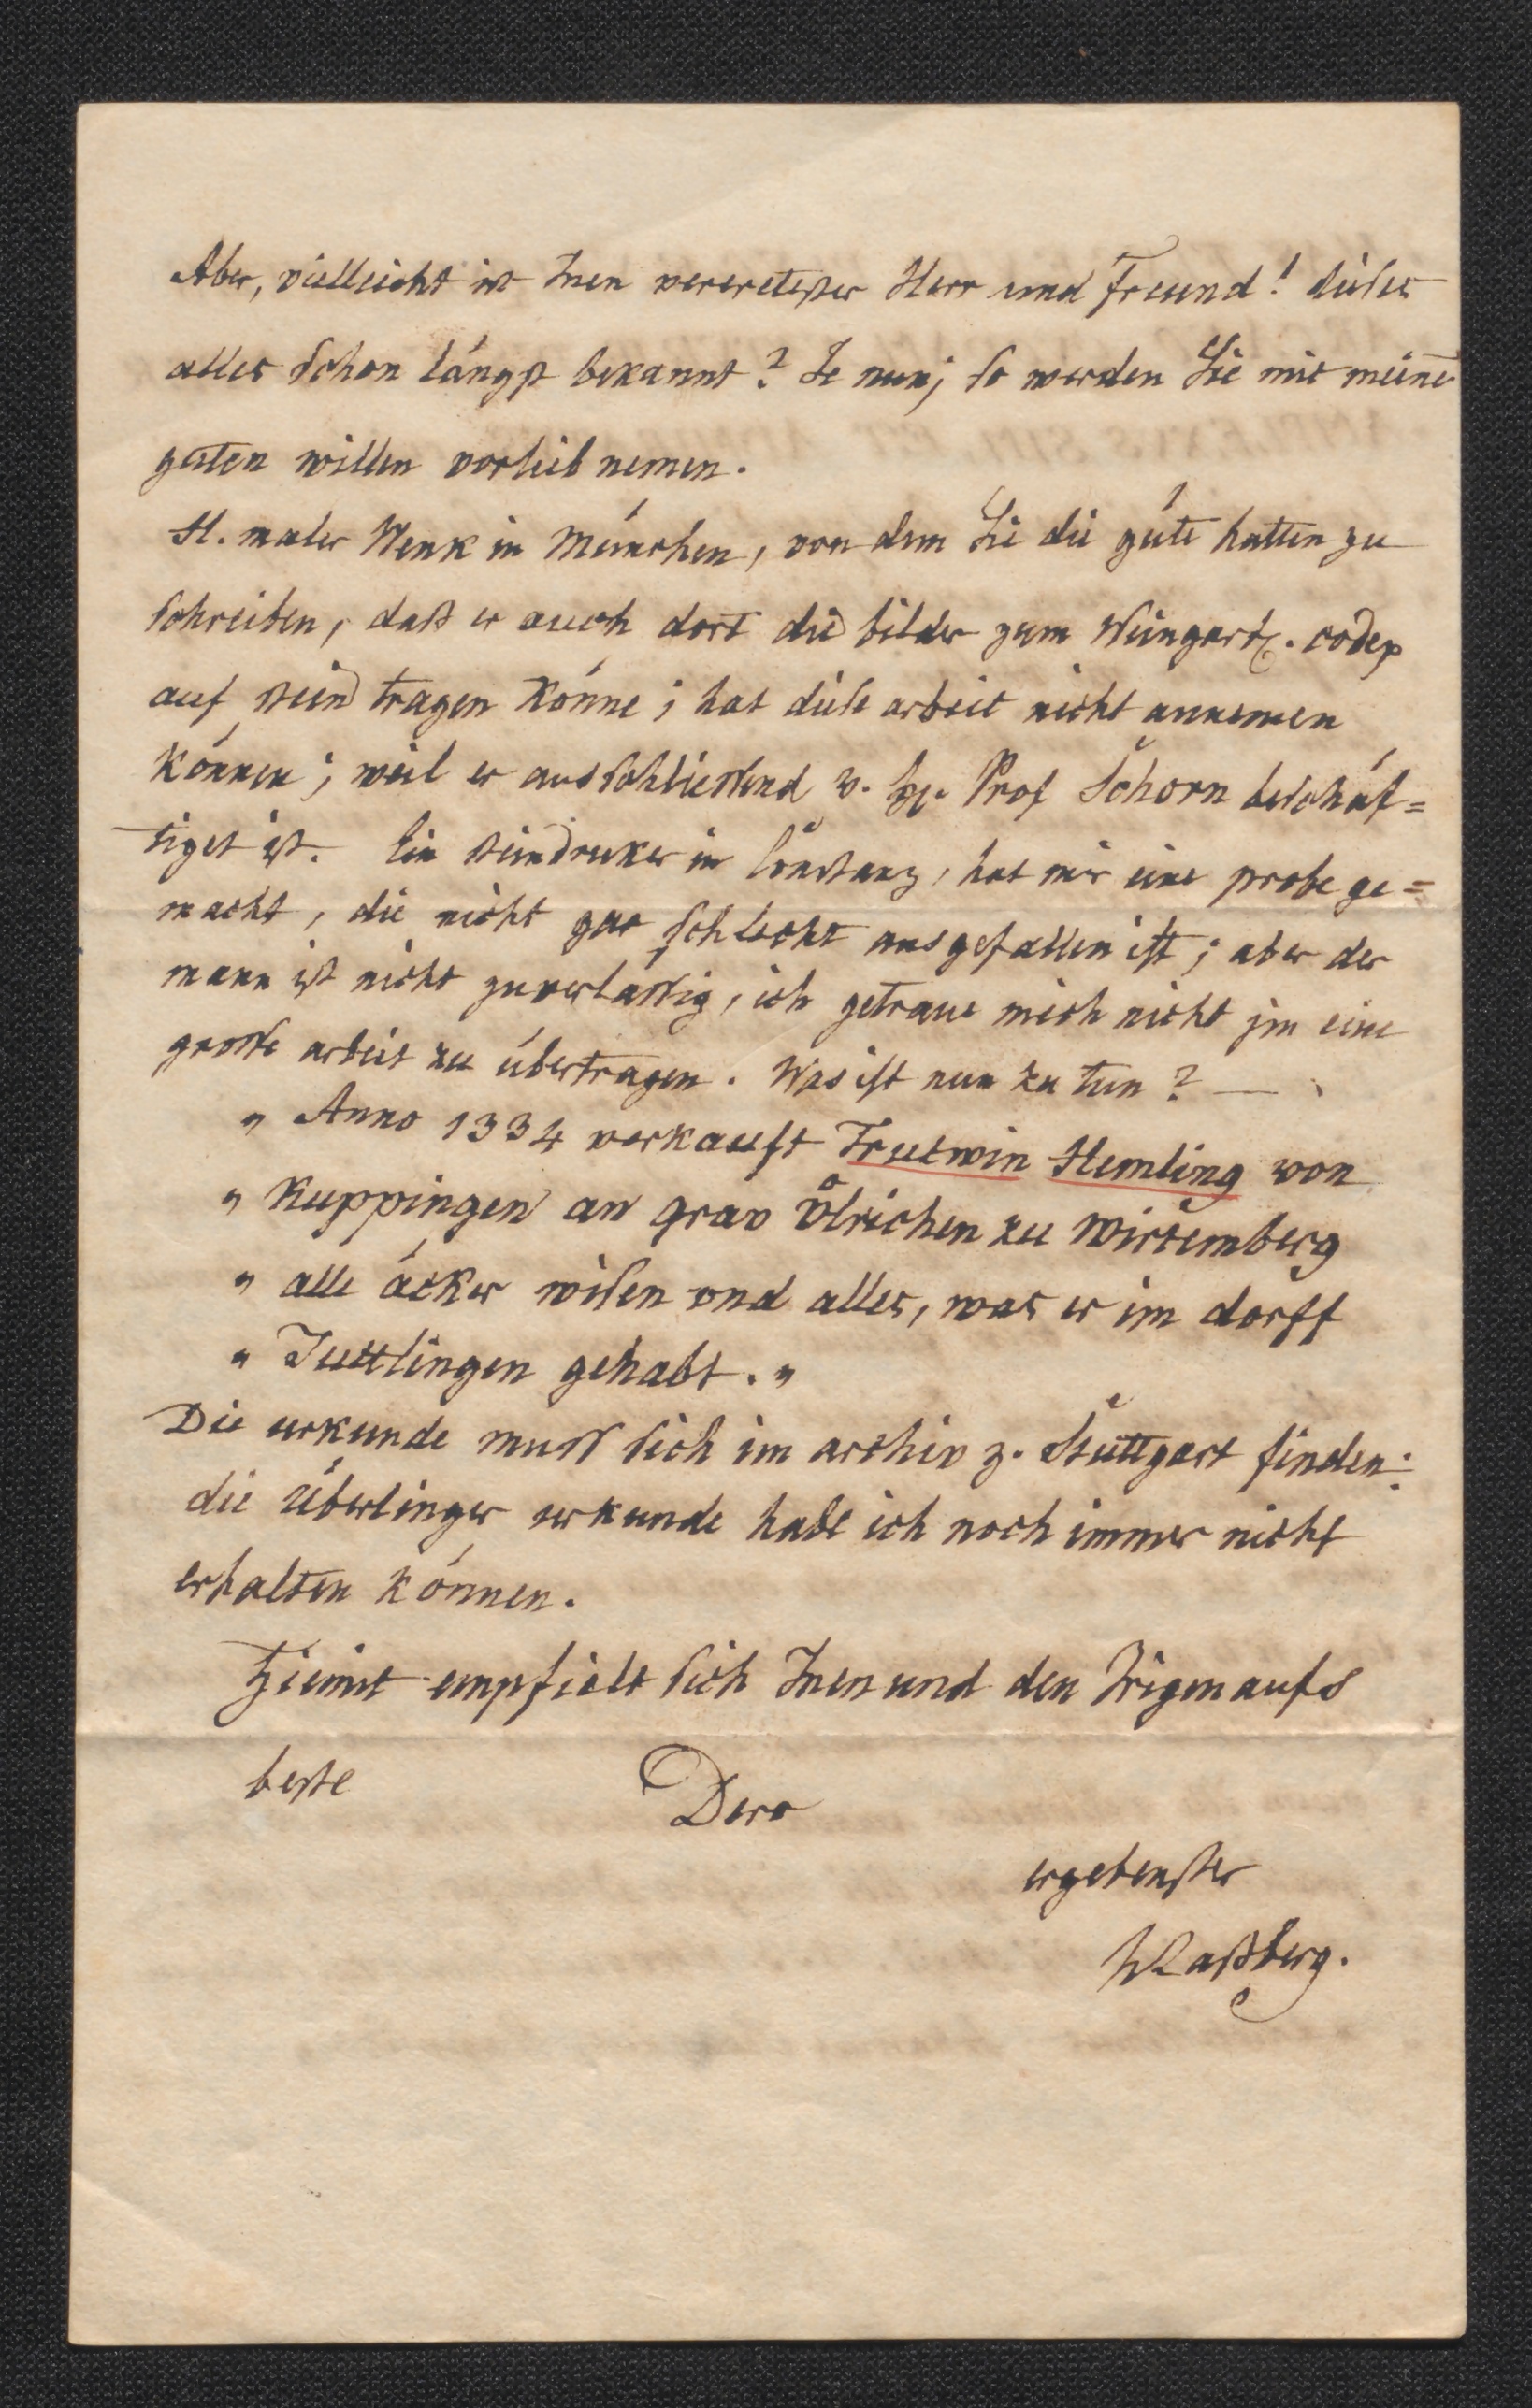 Aber, vielleicht ist Inen vereretester Herr und Freund! dieses
alles schon längst bekannt? Je nun; so werden Sie mit meinē
guten willen vorlieb nemen.
H. maler Wenk in München, von dem Sie die güte hatten zu
schreiben, daß er auch dort die bilder zum Weingart. codex
auf stein tragen könne; hat diese arbeit nicht annemen
können; weil er ausschliessend v. H. Prof Schorn beschäf=
tiget ist. Ein steindruker in Constanz, hat mir eine probe ge=
macht, die nicht gar schlecht ausgefallen ist; aber der
mann ist nicht zuverlässig, ich getraue mich nicht jm eine
grosse arbeit zu übertragen. Was ist nun zu tun? —
„ Anno 1334 verkauft Trutwin Hemling von
„ Kuppingen an grav Ůlrichen zu Wirtemberg
„ alle äcker wisen vnd alles, was er im dorff
„ Juttlingen gehabt. „
Die urkunde muss sich im archiv z. Stuttgart finden:
die Überlinger urkunde habe ich noch immer nicht
erhalten können.
Hiemit empfielt sich Inen und den Irigen aufs
beste Dero
ergebenster
JLaßberg.